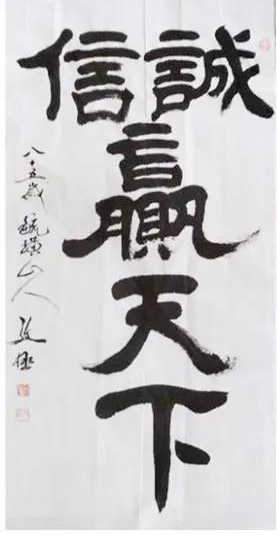 誠信
贏
天
下
八十五歲
山人